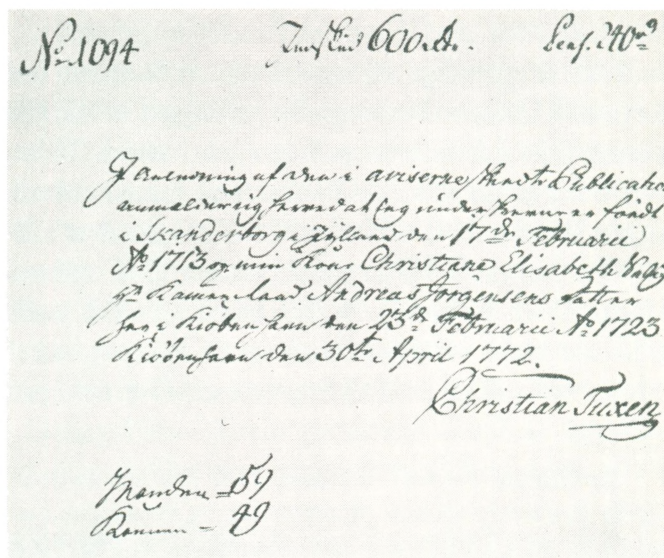 No. 1094
Indskud 600 rdr.
Pens. 40 rdr
I Anledning af den i aviserne skeedte Publication
anmelder jeg herved at jeg underskrevne er født
i Skanderborg i Jylland den 17de Februarii
Ao. 1713 og min Kone Christiane Elisabeth
Andreas Jørgensens datter
her i Kiøbenhavn den 23de Februarii Ao. 1723.
Kiøbenhavn den 30te April 1772.
Christian Tuxen
Manden = 59
Konen = 49